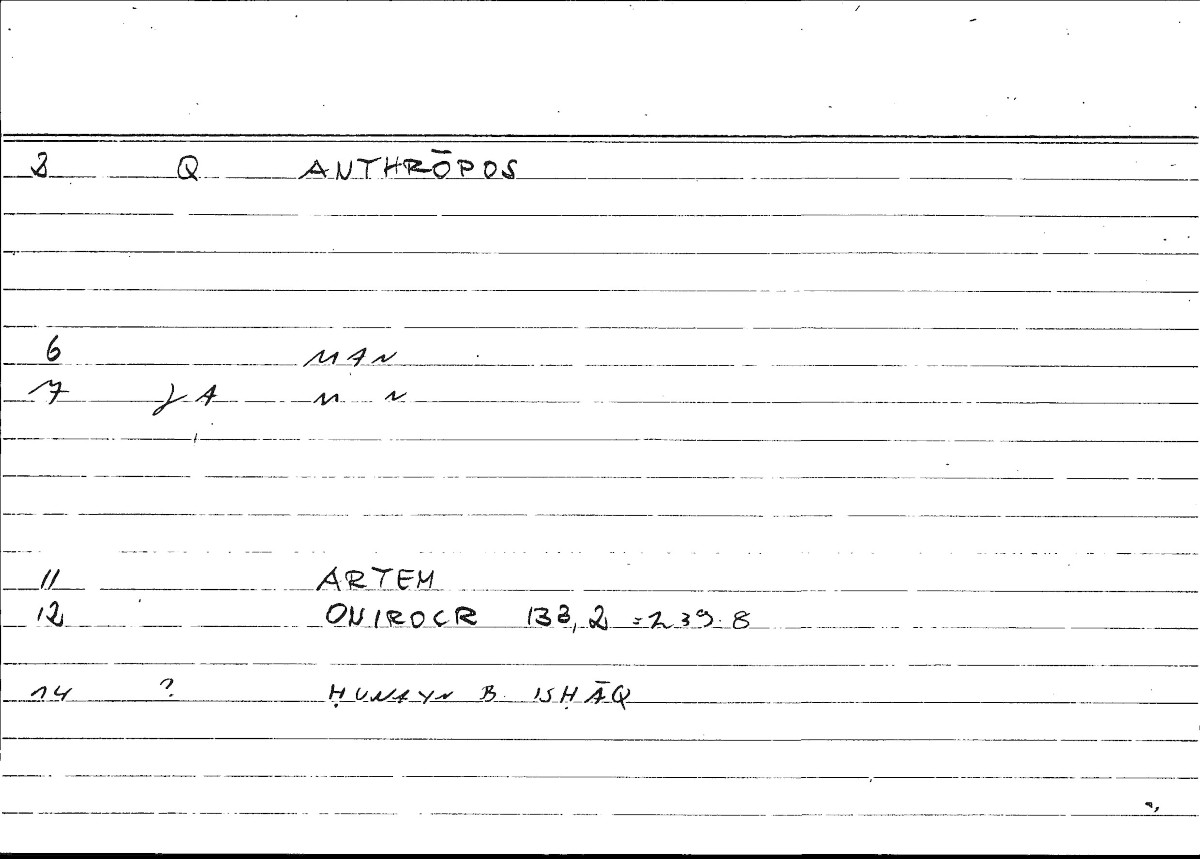 3 Q ANTHRŌPOS
6 MAN
7 JA M N
11 ARTEM
12 ONIROCR 133,2 =239.8
14 ? ḤUNAYN B. ISḤĀQ